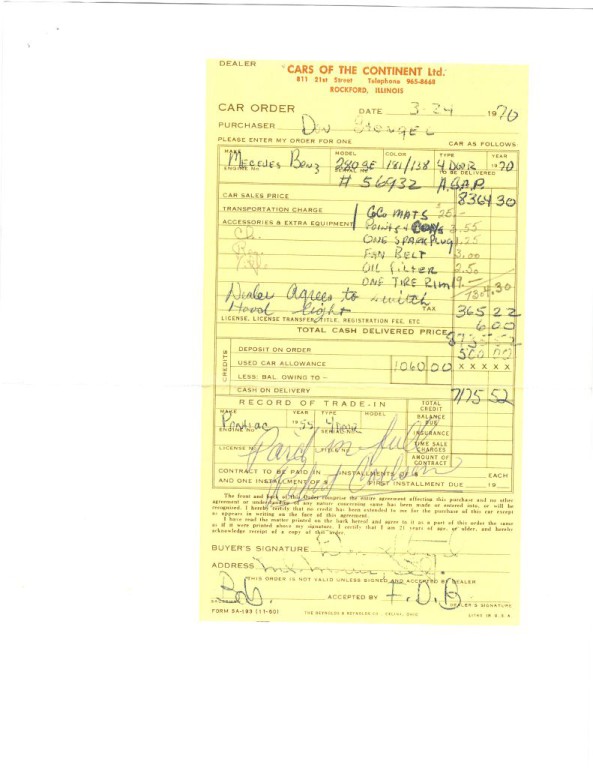 DEALER
"CARS OF THE CONTINENT Ltd."
811 21st Street Telephone 965-8668
ROCKFORD, ILLINOIS
CAR ORDER DATE 3-24 1970
PURCHASER Don Stengel
PLEASE ENTER MY ORDER FOR ONE CAR AS FOLLOWS:
MAKE MODEL COLOR TYPE YEAR
Mercedes Benz 280SE 181/138 4 DOOR 1970
ENGINE NO. TO BE DELIVERED
# 56932 A.S.A.P.
CAR SALES PRICE 8364 30
TRANSPORTATION CHARGE COCO MATS 25.-
ACCESSORIES & EXTRA EQUIPMENT POINTS + 3.55
ONE SPARKPLUG 1.25
FAN BELT 3.00
OIL FILTER 2.50
ONE TIRE RIM 19.-
Dealer Agrees to switch
Head light TAX 365 22
LICENSE, LICENSE TRANSFER, TITLE, REGISTRATION FEE, ETC. 6.00
TOTAL CASH DELIVERED PRICE
CREDITS
DEPOSIT ON ORDER 500 00
USED CAR ALLOWANCE 1060 00 X X X X X
LESS: BAL. OWING TO -
CASH ON DELIVERY 7175 52
RECORD OF TRADE-IN TOTAL CREDIT
MAKE YEAR TYPE MODEL BALANCE DUE
Pontiac 1955 4 Door
ENGINE NO. SERIAL NO. INSURANCE
LICENSE NO. TITLE NO. TIME SALE CHARGES
Paid in full
AMOUNT OF CONTRACT
CONTRACT TO BE PAID IN INSTALLMENTS EACH
AND ONE INSTALLMENT OF $ FIRST INSTALLMENT DUE 19
The front and back of this Order comprise the entire agreement affecting this purchase and no other
agreement or understanding of any nature concerning same has been made or entered into, or will be
recognized. I hereby certify that no credit has been extended to me for the purchase of this car except
as appears in writing on the face of this agreement.
I have read the matter printed on the back hereof and agree to it as a part of this order the same
as if it were printed above my signature. I certify that I am 21 years of age, or older, and hereby
acknowledge receipt of a copy of this order.
BUYER'S SIGNATURE
ADDRESS
THIS ORDER IS NOT VALID UNLESS SIGNED AND ACCEPTED BY DEALER
ACCEPTED BY
DEALER'S SIGNATURE
THE REYNOLDS & REYNOLDS CO., CELINA, OHIO LITHO IN U.S.A.